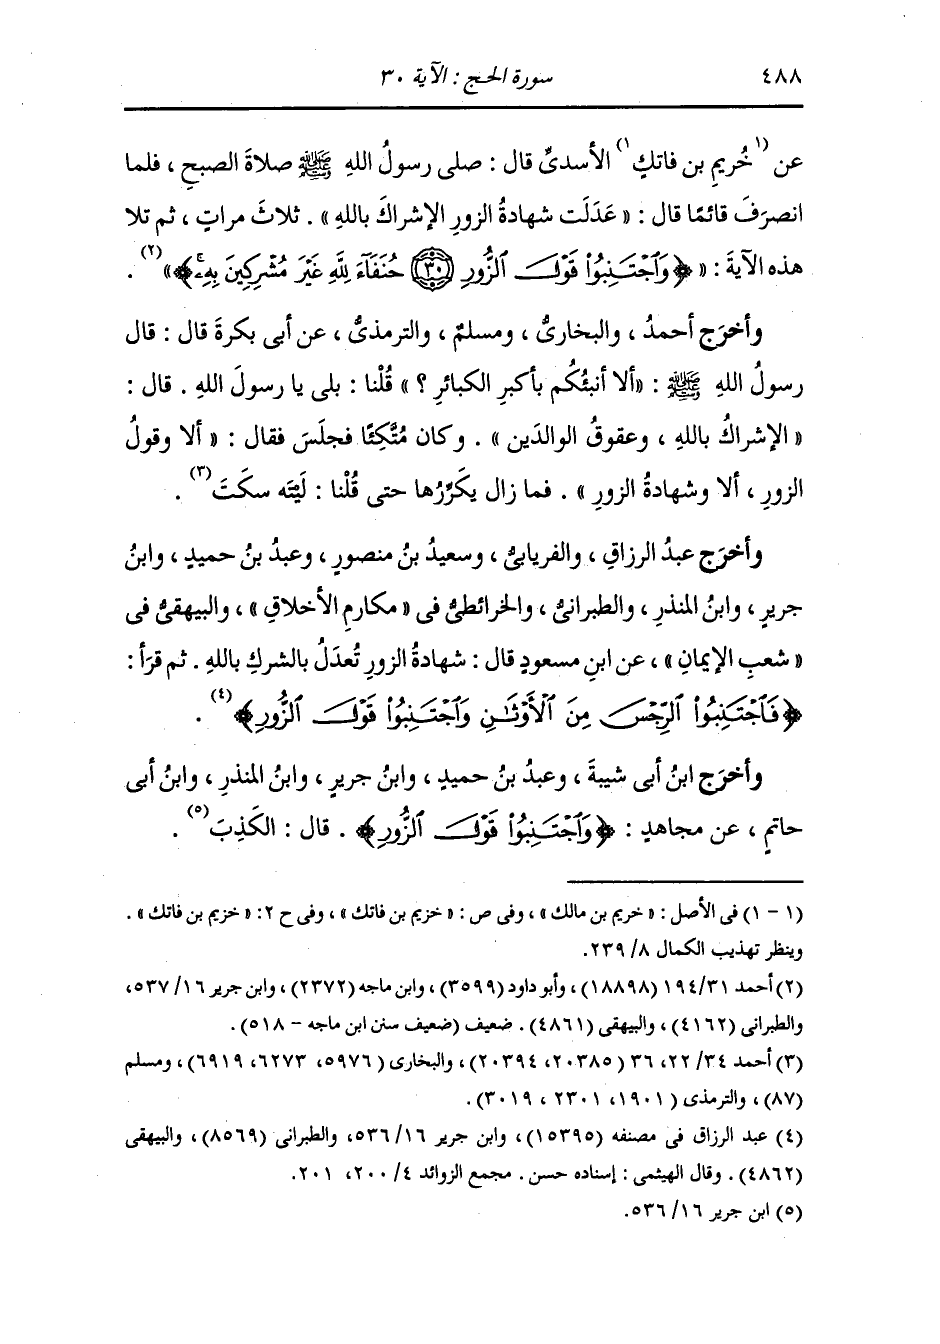 ٤٨٨
سورة الحج : الآية ٣٠
عن ⁽¹خُريمِ بن فاتكٍ¹⁾ الأسدىِّ قال : صلى رسولُ اللهِ ﷺ صلاةَ الصبحِ ، فلما
انصرَفَ قائمًا قال : « عَدَلَت شهادةُ الزورِ الإشراكَ باللهِ » . ثلاثَ مراتٍ ، ثم تلا
هذه الآيةَ : « ﴿ وَٱجْتَنِبُوا۟ قَوْلَ ٱلزُّورِ ﴿٣٠﴾ حُنَفَآءَ لِلَّهِ غَيْرَ مُشْرِكِينَ بِهِۦ ﴾ »(٢) .
وأخرَج أحمدُ ، والبخارىُّ ، ومسلمٌ ، والترمذىُّ ، عن أبى بكرةَ قال : قال
رسولُ اللهِ ﷺ : «ألا أنبئُكُم بأكبرِ الكبائرِ ؟ » قُلْنا : بلى يا رسولَ اللهِ . قال :
« الإشراكُ باللهِ ، وعقوقُ الوالدَين » . وكان مُتَّكِئًا فجلَسَ فقال : « ألا وقولُ
الزورِ ، ألا وشهادةُ الزورِ » . فما زال يكَرِّرُها حتى قُلْنا : لَيْتَه سكَتَ(٣) .
وأخرَج عبدُ الرزاقِ ، والفريابىُّ ، وسعيدُ بنُ منصورٍ ، وعبدُ بنُ حميدٍ ، وابنُ
جريرٍ ، وابنُ المنذرِ ، والطبرانىُّ ، والخرائطىُّ فى « مكارمِ الأخلاقِ » ، والبيهقىُّ فى
« شعبِ الإيمانِ » ، عن ابنِ مسعودٍ قال : شهادةُ الزورِ تُعدَلُ بالشركِ باللهِ . ثم قرَأ :
﴿ فَٱجْتَنِبُوا۟ ٱلرِّجْسَ مِنَ ٱلْأَوْثَـٰنِ وَٱجْتَنِبُوا۟ قَوْلَ ٱلزُّورِ ﴾(٤) .
وأخرَج ابنُ أبى شيبةَ ، وعبدُ بنُ حميدٍ ، وابنُ جريرٍ ، وابنُ المنذرِ ، وابنُ أبى
حاتمٍ ، عن مجاهدٍ : ﴿ وَٱجْتَنِبُوا۟ قَوْلَ ٱلزُّورِ ﴾ . قال : الكَذِبَ(٥) .
(١ - ١) فى الأصل : « خريم بن مالك » ، وفى ص : « خزيم بن فاتك » ، وفى ح ٢: « خزيم بن فاتك » .
وينظر تهذيب الكمال ٨/ ٢٣٩.
(٢) أحمد ٣١/ ١٩٤ (١٨٨٩٨) ، وأبو داود (٣٥٩٩) ، وابن ماجه (٢٣٧٢) ، وابن جرير ١٦/ ٥٣٧،
والطبرانى (٤١٦٢) ، والبيهقى (٤٨٦١) . ضعيف (ضعيف سنن ابن ماجه - ٥١٨).
(٣) أحمد ٣٤/ ٢٢، ٣٦ (٢٠٣٨٥، ٢٠٣٩٤) ، والبخارى (٥٩٧٦، ٦٢٧٣، ٦٩١٩) ، ومسلم
(٨٧) ، والترمذى (١٩٠١، ٢٣٠١ ، ٣٠١٩).
(٤) عبد الرزاق فى مصنفه (١٥٣٩٥) ، وابن جرير ١٦/ ٥٣٦، والطبرانى (٨٥٦٩) ، والبيهقى
(٤٨٦٢) . وقال الهيثمى : إسناده حسن . مجمع الزوائد ٤/ ٢٠٠، ٢٠١.
(٥) ابن جرير ١٦/ ٥٣٦.